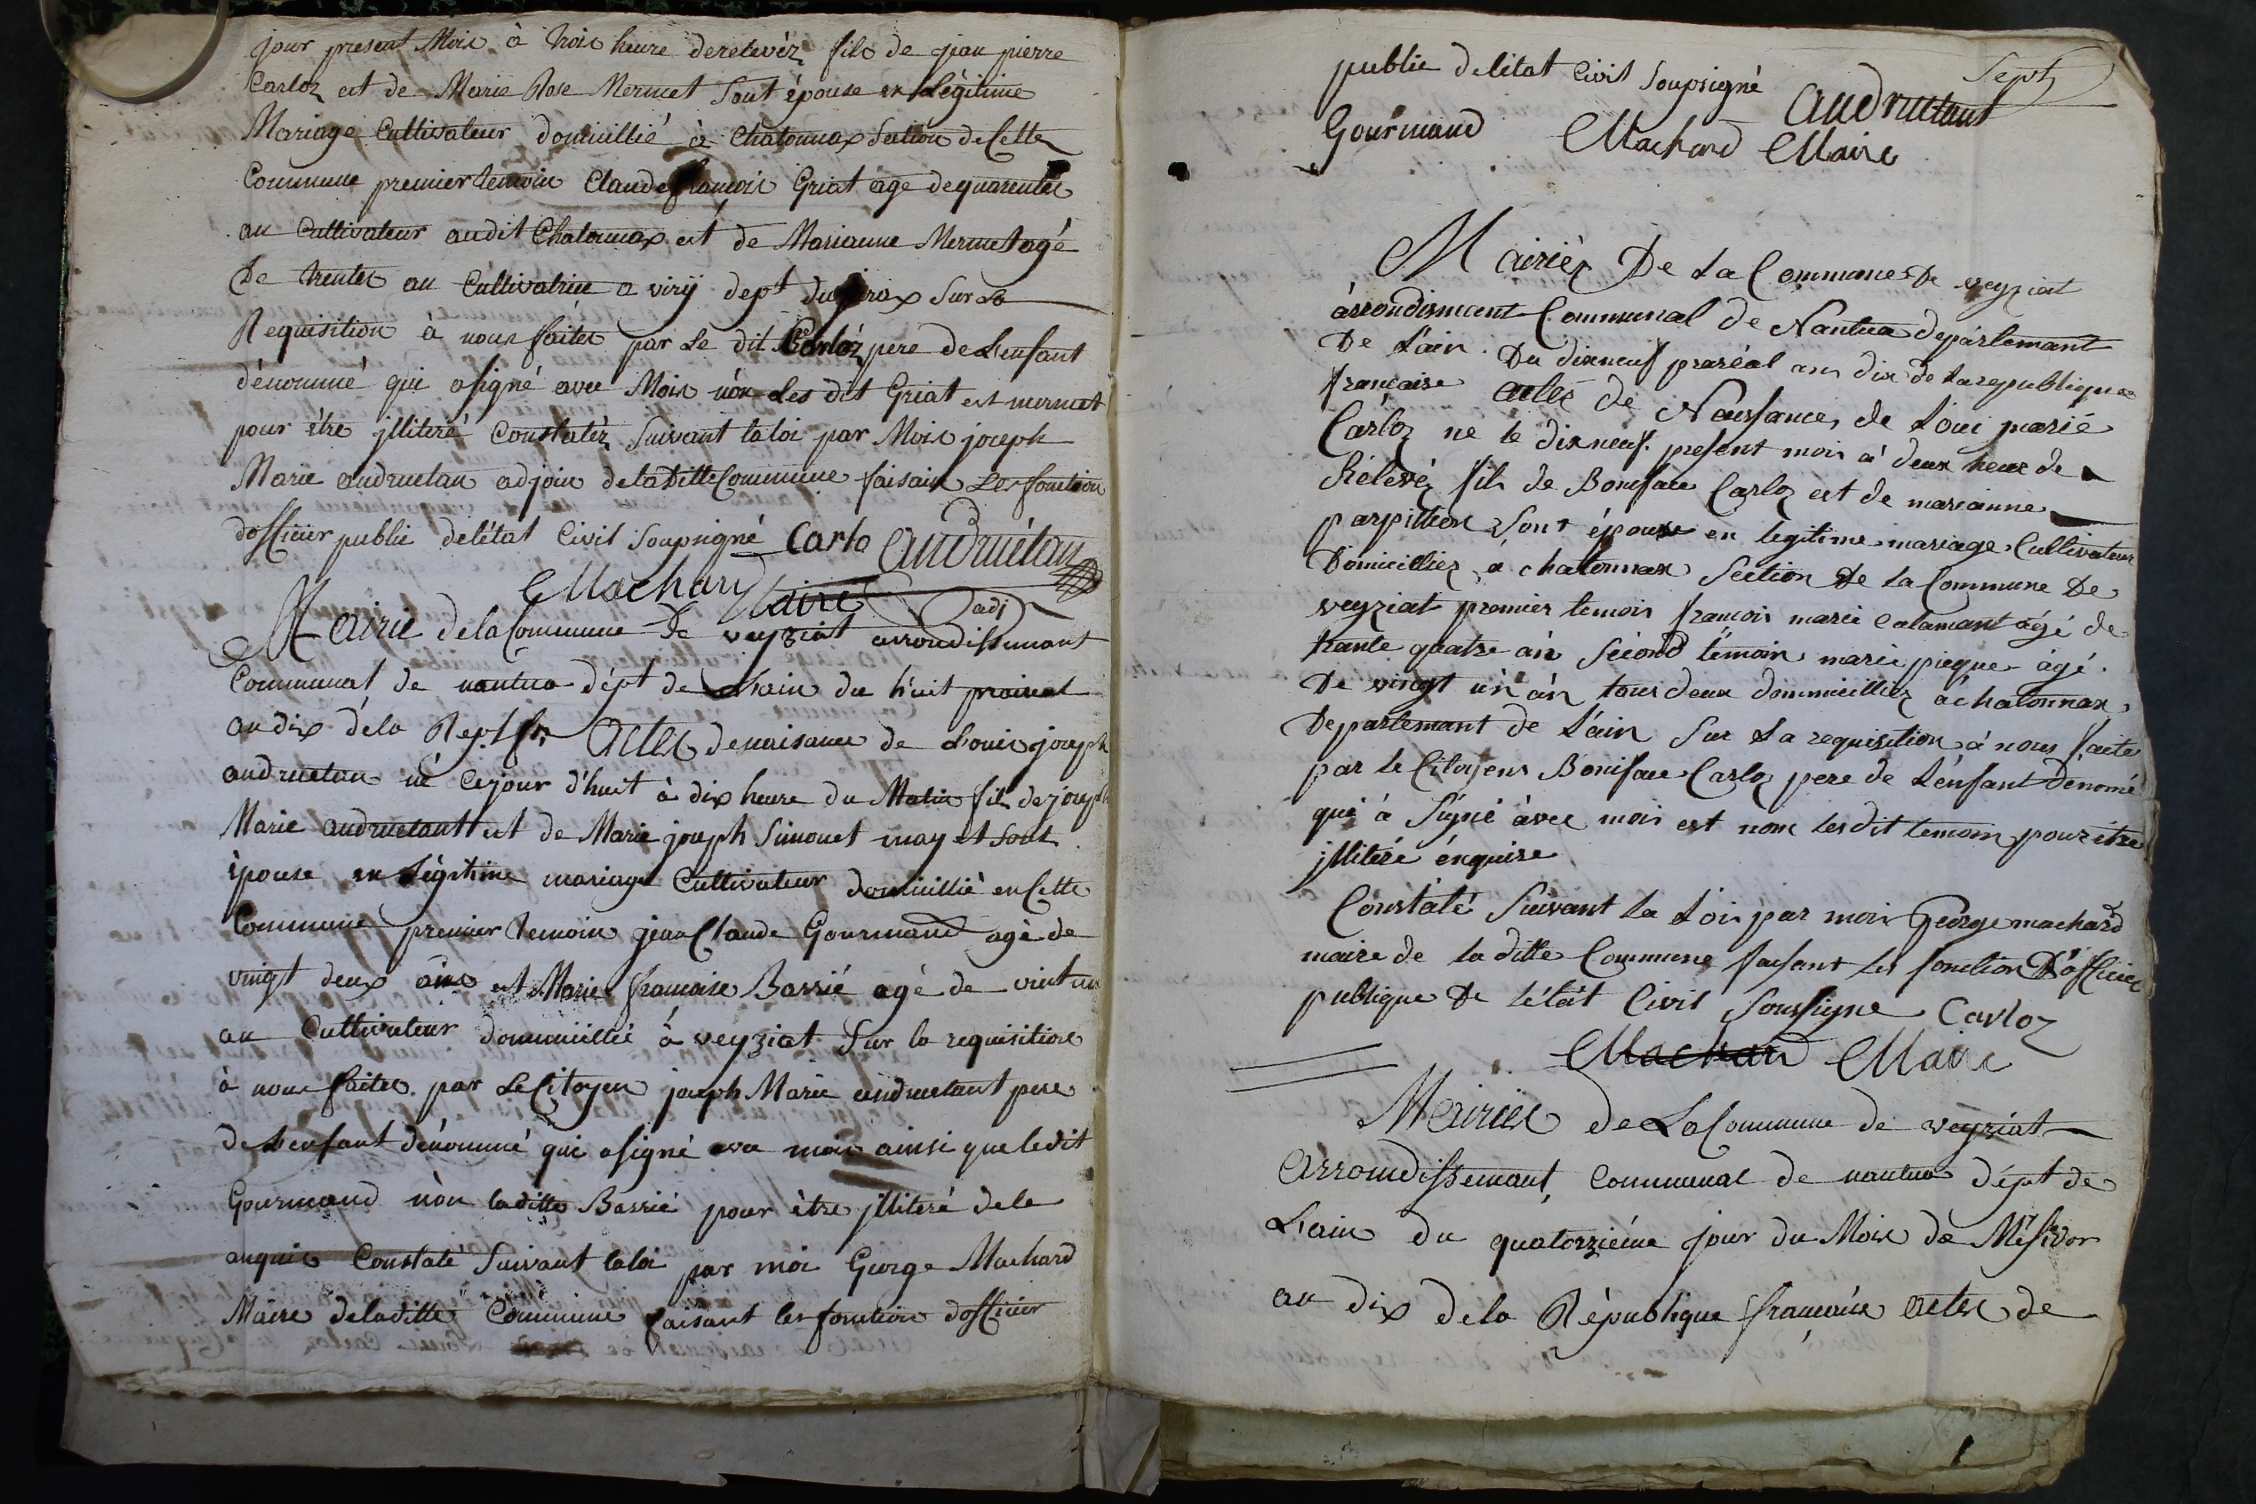 jour present Mois à trois heure derelevéz fils de jean pierre
Carloz est de Marie Rose Mermet Sont épouse en Légitime
Mariage Cultivateur domicillié à Chatonnax Section de Cette
Commune premier temoin Claude françois Griat age dequarentes
an Cultivateur audit Chatonnax est de Marianne Mermet agé
De trentes an Cultivatrice a viry dept du jurax Sur La
Requisition à nous faites par Le dit Carloz pere de L'enfant
dénommé qui asigné avec Mois nón Les dit Griat est mermet
pour être jlliteré Constatéz Suivant laloi par Mois joseph
Marie audruetan adjoin deladitte Commune faisain Les fonction
dofficier publie deletat Civil Soupsigné Carlo audruétan
Machard Maire adj
Mairie dela Commune De veyziat arrondissemant
Communal de nantua dépt de Lhain du huit prairial
an dix déla Rep fr Actes denaisance de Louis joseph
audruetan né Cejour d'huit à dix heure du Matin fils de joseph
Marie audruetant est de Marie joseph Simonet may et sont
épouse en Légitime mariage Cultivateur domicillié en Cette
Commune premier temoin jean Claude Gourmand agé de
vingt deux ans est Marie françoise Bassié agé de vint un
an Cultivateur dommicillié à veyziat Sur la requisition
à nous faites par Le Citoyen joseph Marie audruetant pere
de L'enfant dénommé qui asigné avec mois ainsi que ledit
Gourmand nòn laditte Bassié pour être jlliteré dele
anquis Constaté Suivant laloi par moi George Machard
Maire deladitte Commune faisant les fonction dofficier
publie deletat Civil Soupsigné Sept
audruetant
Gourmand Machard Maire
Mairiéz De La Commune De veyziat
arrondisment Communal de Nantua departemant
De L'ain. Du dixneuf praréal ans dix de La republique
française acles de Naissance, de Loui marié
Carloz ne le dixneuf present mois à deux heur de
Rélevéz fils de Boniface Carloz est de marianne
parpillion Sont épouse en legitime mariage Cultivateur
Domicilliez à chatonnax Section De la Commune De
veyziat premier temoin françois marie Calamant agé de
trante quatre an Sécond témoin marie pieque àgé
De vingt ùn àn tous deux dommicilliez à chatonnax
Departemant de L'ain Sur La requisition à nous faite
par le Citoyens Boniface Carloz pere de L'énfant dénomé
qui à Signé àvec moi est nom lesdit temoin pour être
jlliteré énquise
Constaté Suivant la Loi par mois George machard
maire de laditte Commune faisant les fonction D'officier
publique De L'état Civil Soussigne Carloz
Machard Maire
Meiries de La Commune de veyziat
Arromdissemant, Communal de nantua dépt de
L'ain du quatorziéme jour du Mois de Mésidor
an dix dela République française actes de